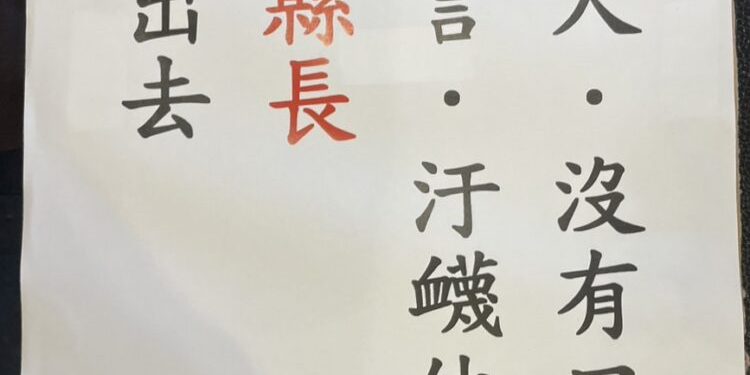 人·沒有
言·汙衊
縣長
出去